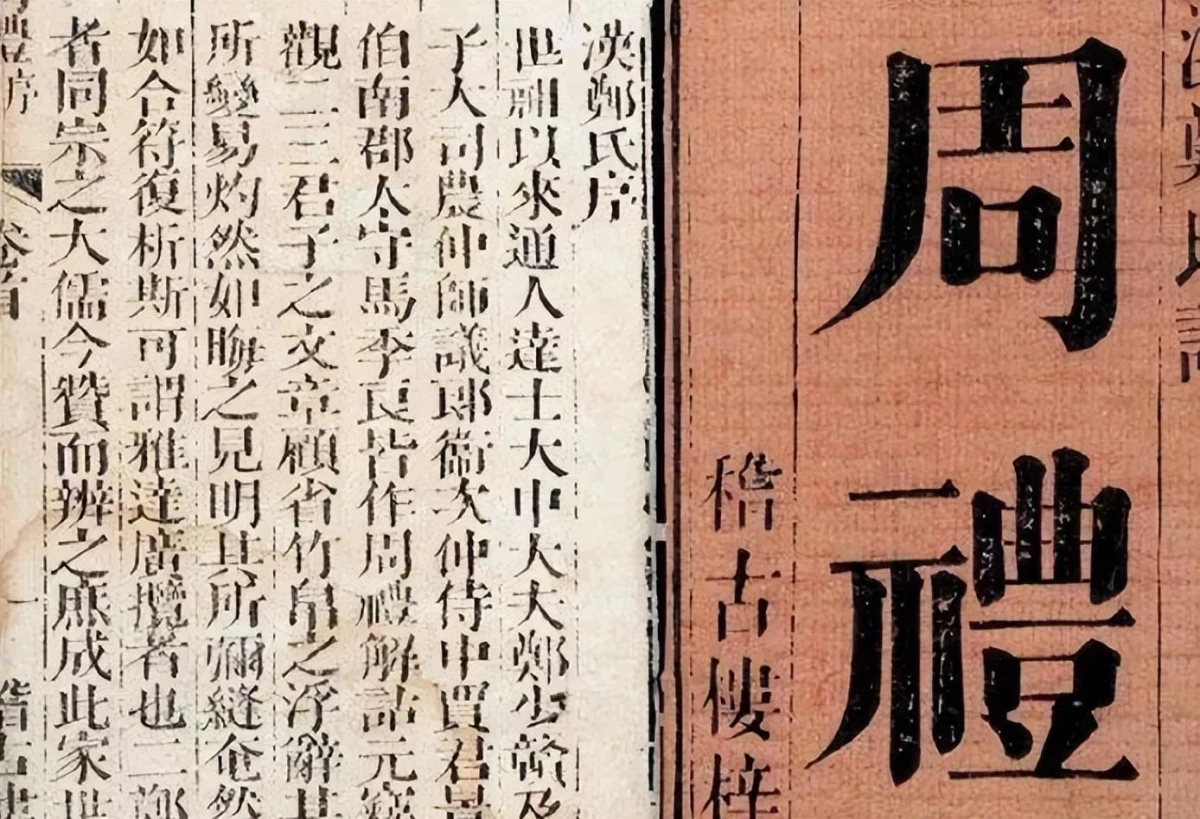 漢鄭氏註
周禮
稽古樓梓
漢鄭氏序
世祖以來通人達士大中大夫鄭少贛及
子大司農仲師議郎衞次仲侍中賈君景
伯南郡太守馬季良皆作周禮解詁元竊
觀二三君子之文章顧省竹帛之浮辭其
所變易灼然如晦之見明其所彌縫奄然
如合符復析斯可謂雅達廣攬者也二鄭
者同宗之大儒今贊而辨之庶成此家世
禮序 卷首 一 稽古樓